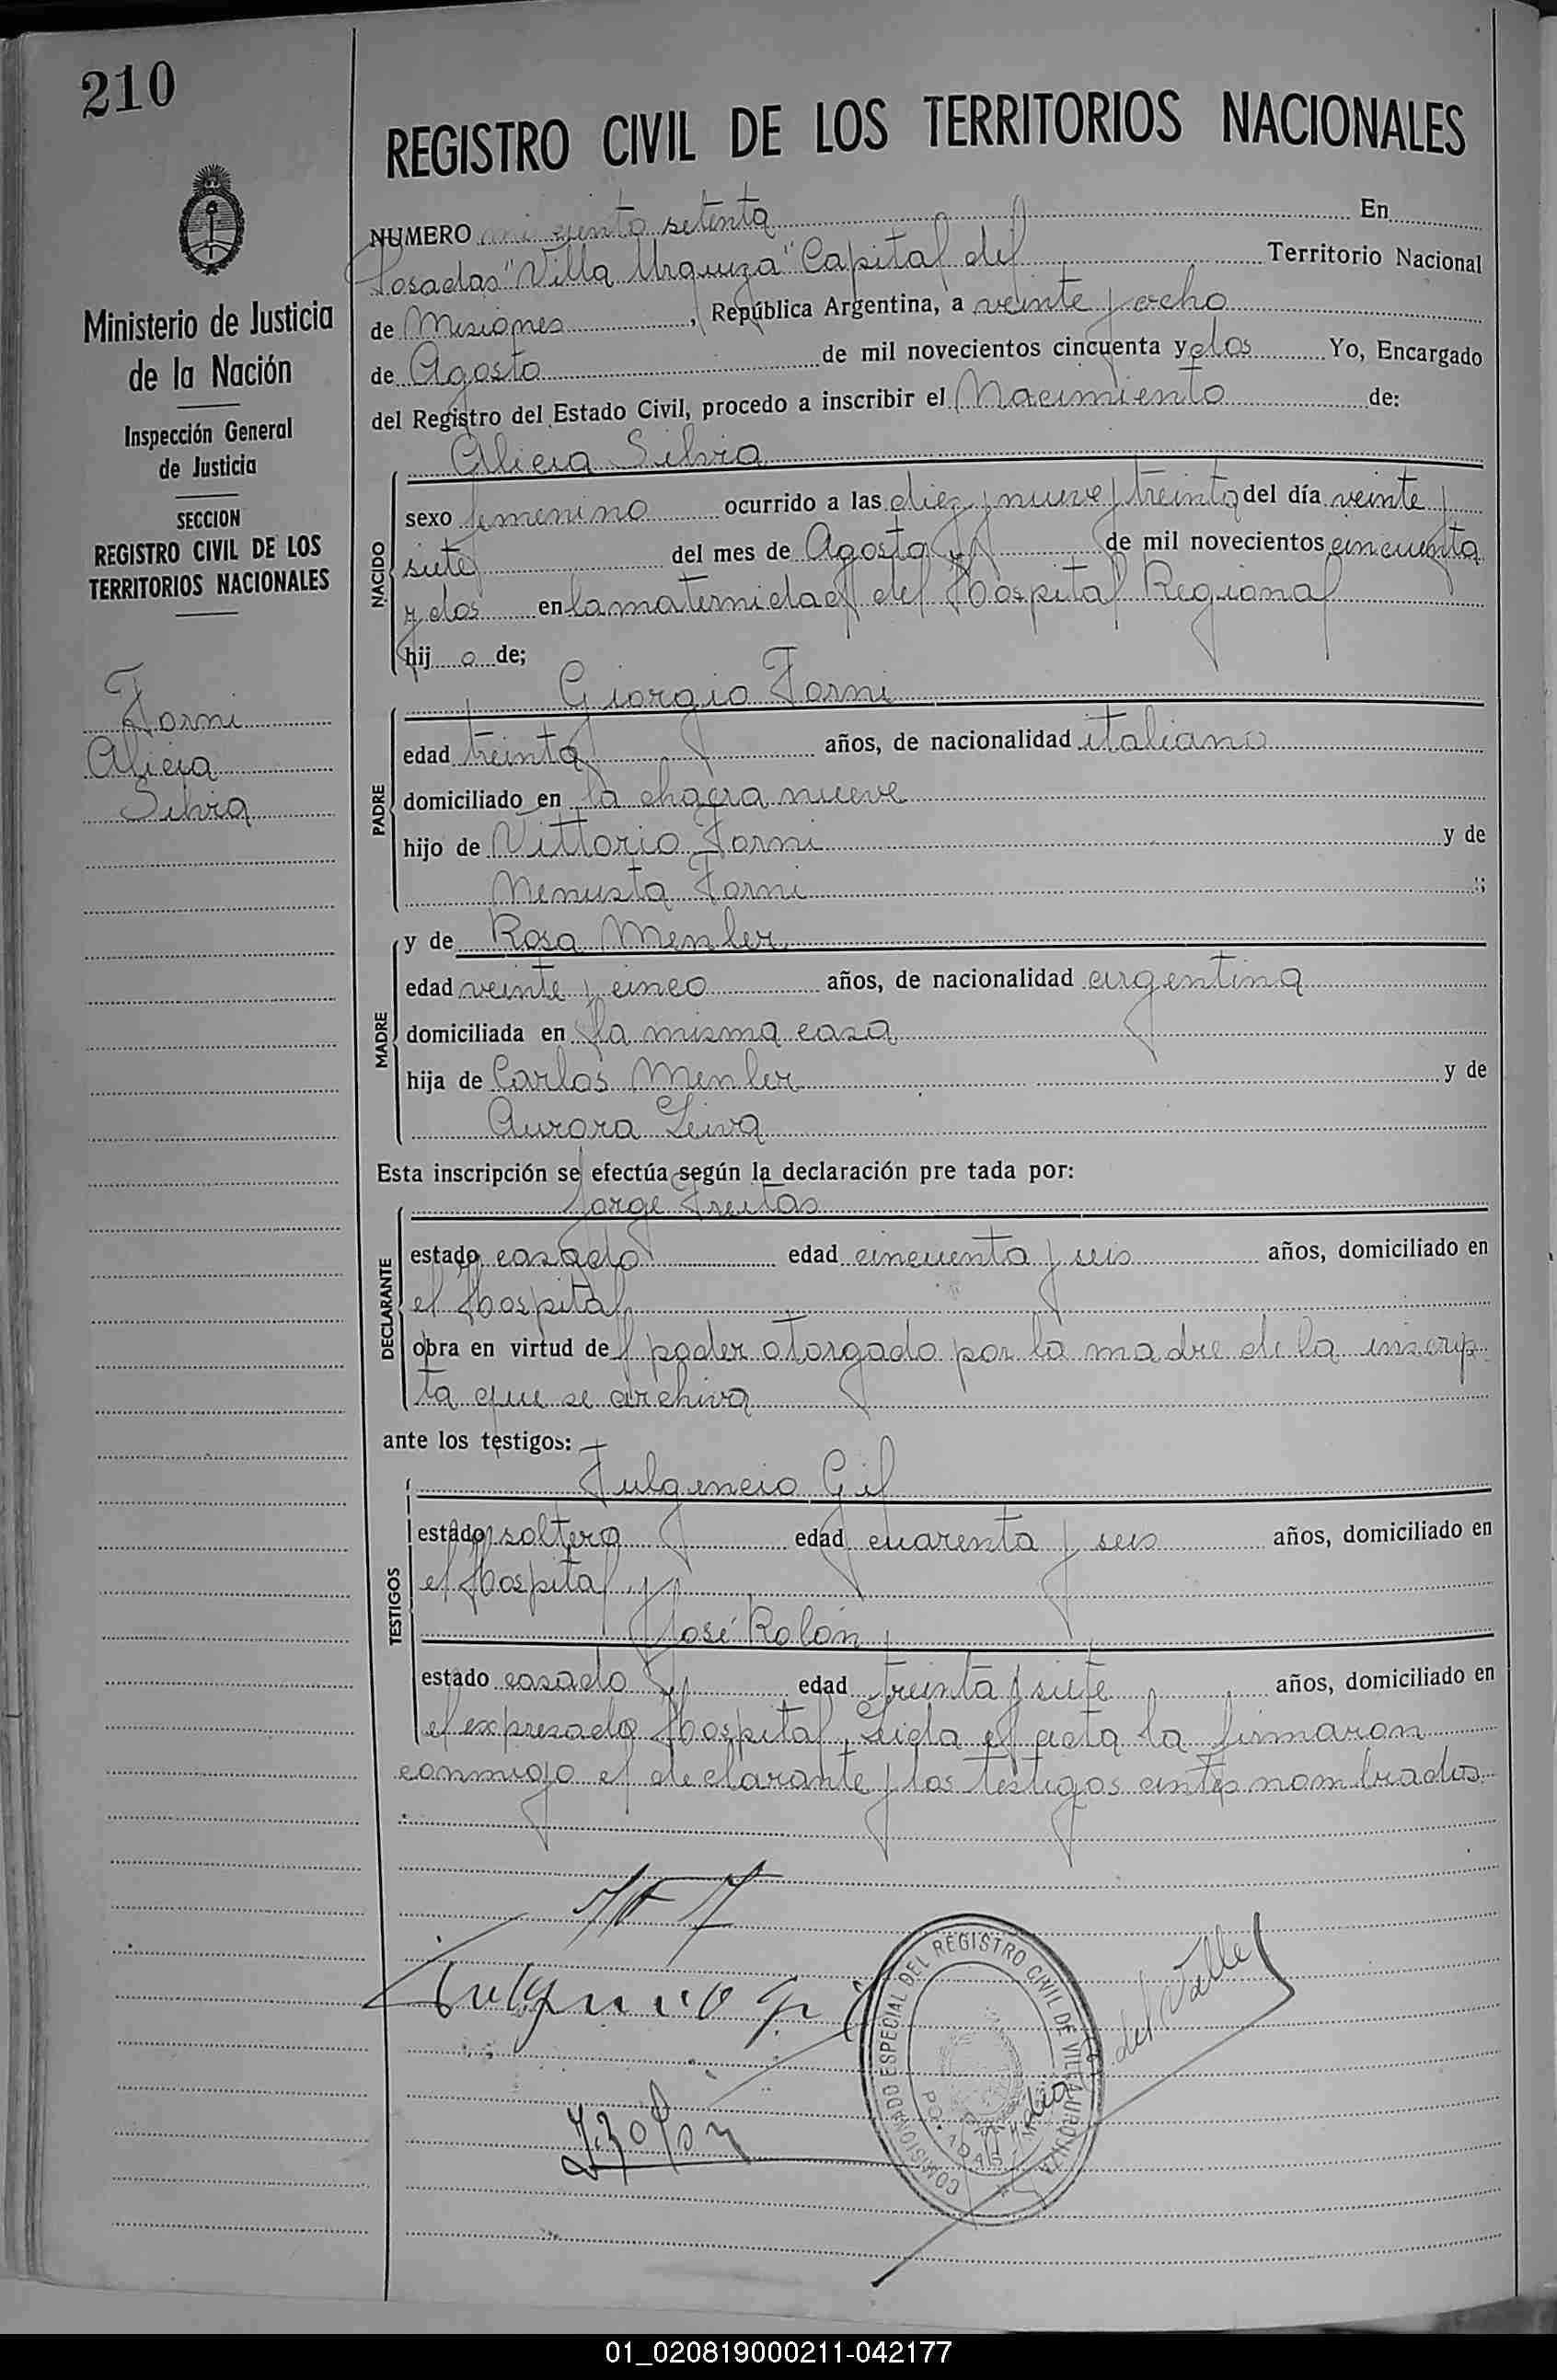 210
Ministerio de Justicia
de la Nación
Inspección General
de Justicia
SECCION
REGISTRO CIVIL DE LOS
TERRITORIOS NACIONALES
Forni
Alicia
Silvia
REGISTRO CIVIL DE LOS TERRITORIOS NACIONALES
NUMERO mil ciento setenta En
Posadas "Villa Urquiza" Capital del Territorio Nacional
de Misiones, República Argentina, a veinte y ocho
de Agosto de mil novecientos cincuenta y dos Yo, Encargado
del Registro del Estado Civil, procedo a inscribir el Nacimiento de:
Alicia Silvia
NACIDO
sexo femenino ocurrido a las diez y nueve y treinta del día veinte y
siete del mes de Agosto de mil novecientos cincuenta
y dos en la maternidad del Hospital Regional
hij a de;
Giorgio Forni
PADRE
edad treinta años, de nacionalidad italiano
domiciliado en la chacra nueve
hijo de Vittorio Forni y de
Forni ;
y de Rosa Menler
MADRE
edad veinte y cinco años, de nacionalidad argentina
domiciliada en la misma casa
hija de Carlos Menler y de
Aurora Leiva
Esta inscripción se efectúa según la declaración pre tada por:
Jorge Freitas
DECLARANTE
estado casado edad cincuenta y seis años, domiciliado en
el Hospital
obra en virtud del poder otorgado por la madre de la inscrip-
ta que se archiva
ante los testigos:
Fulgencio Gil
TESTIGOS
estado soltero edad cuarenta y seis años, domiciliado en
el Hospital y
José Rolón
estado casado edad treinta y siete años, domiciliado en
el expresado Hospital. Leida el acta la firmaron
conmigo el declarante y los testigos antes nombrados.
Fulgencio Gil
J. Rolon
del Valle
COMISIONADO ESPECIAL DEL REGISTRO CIVIL DE VILLA URQUIZA
01_020819000211-042177